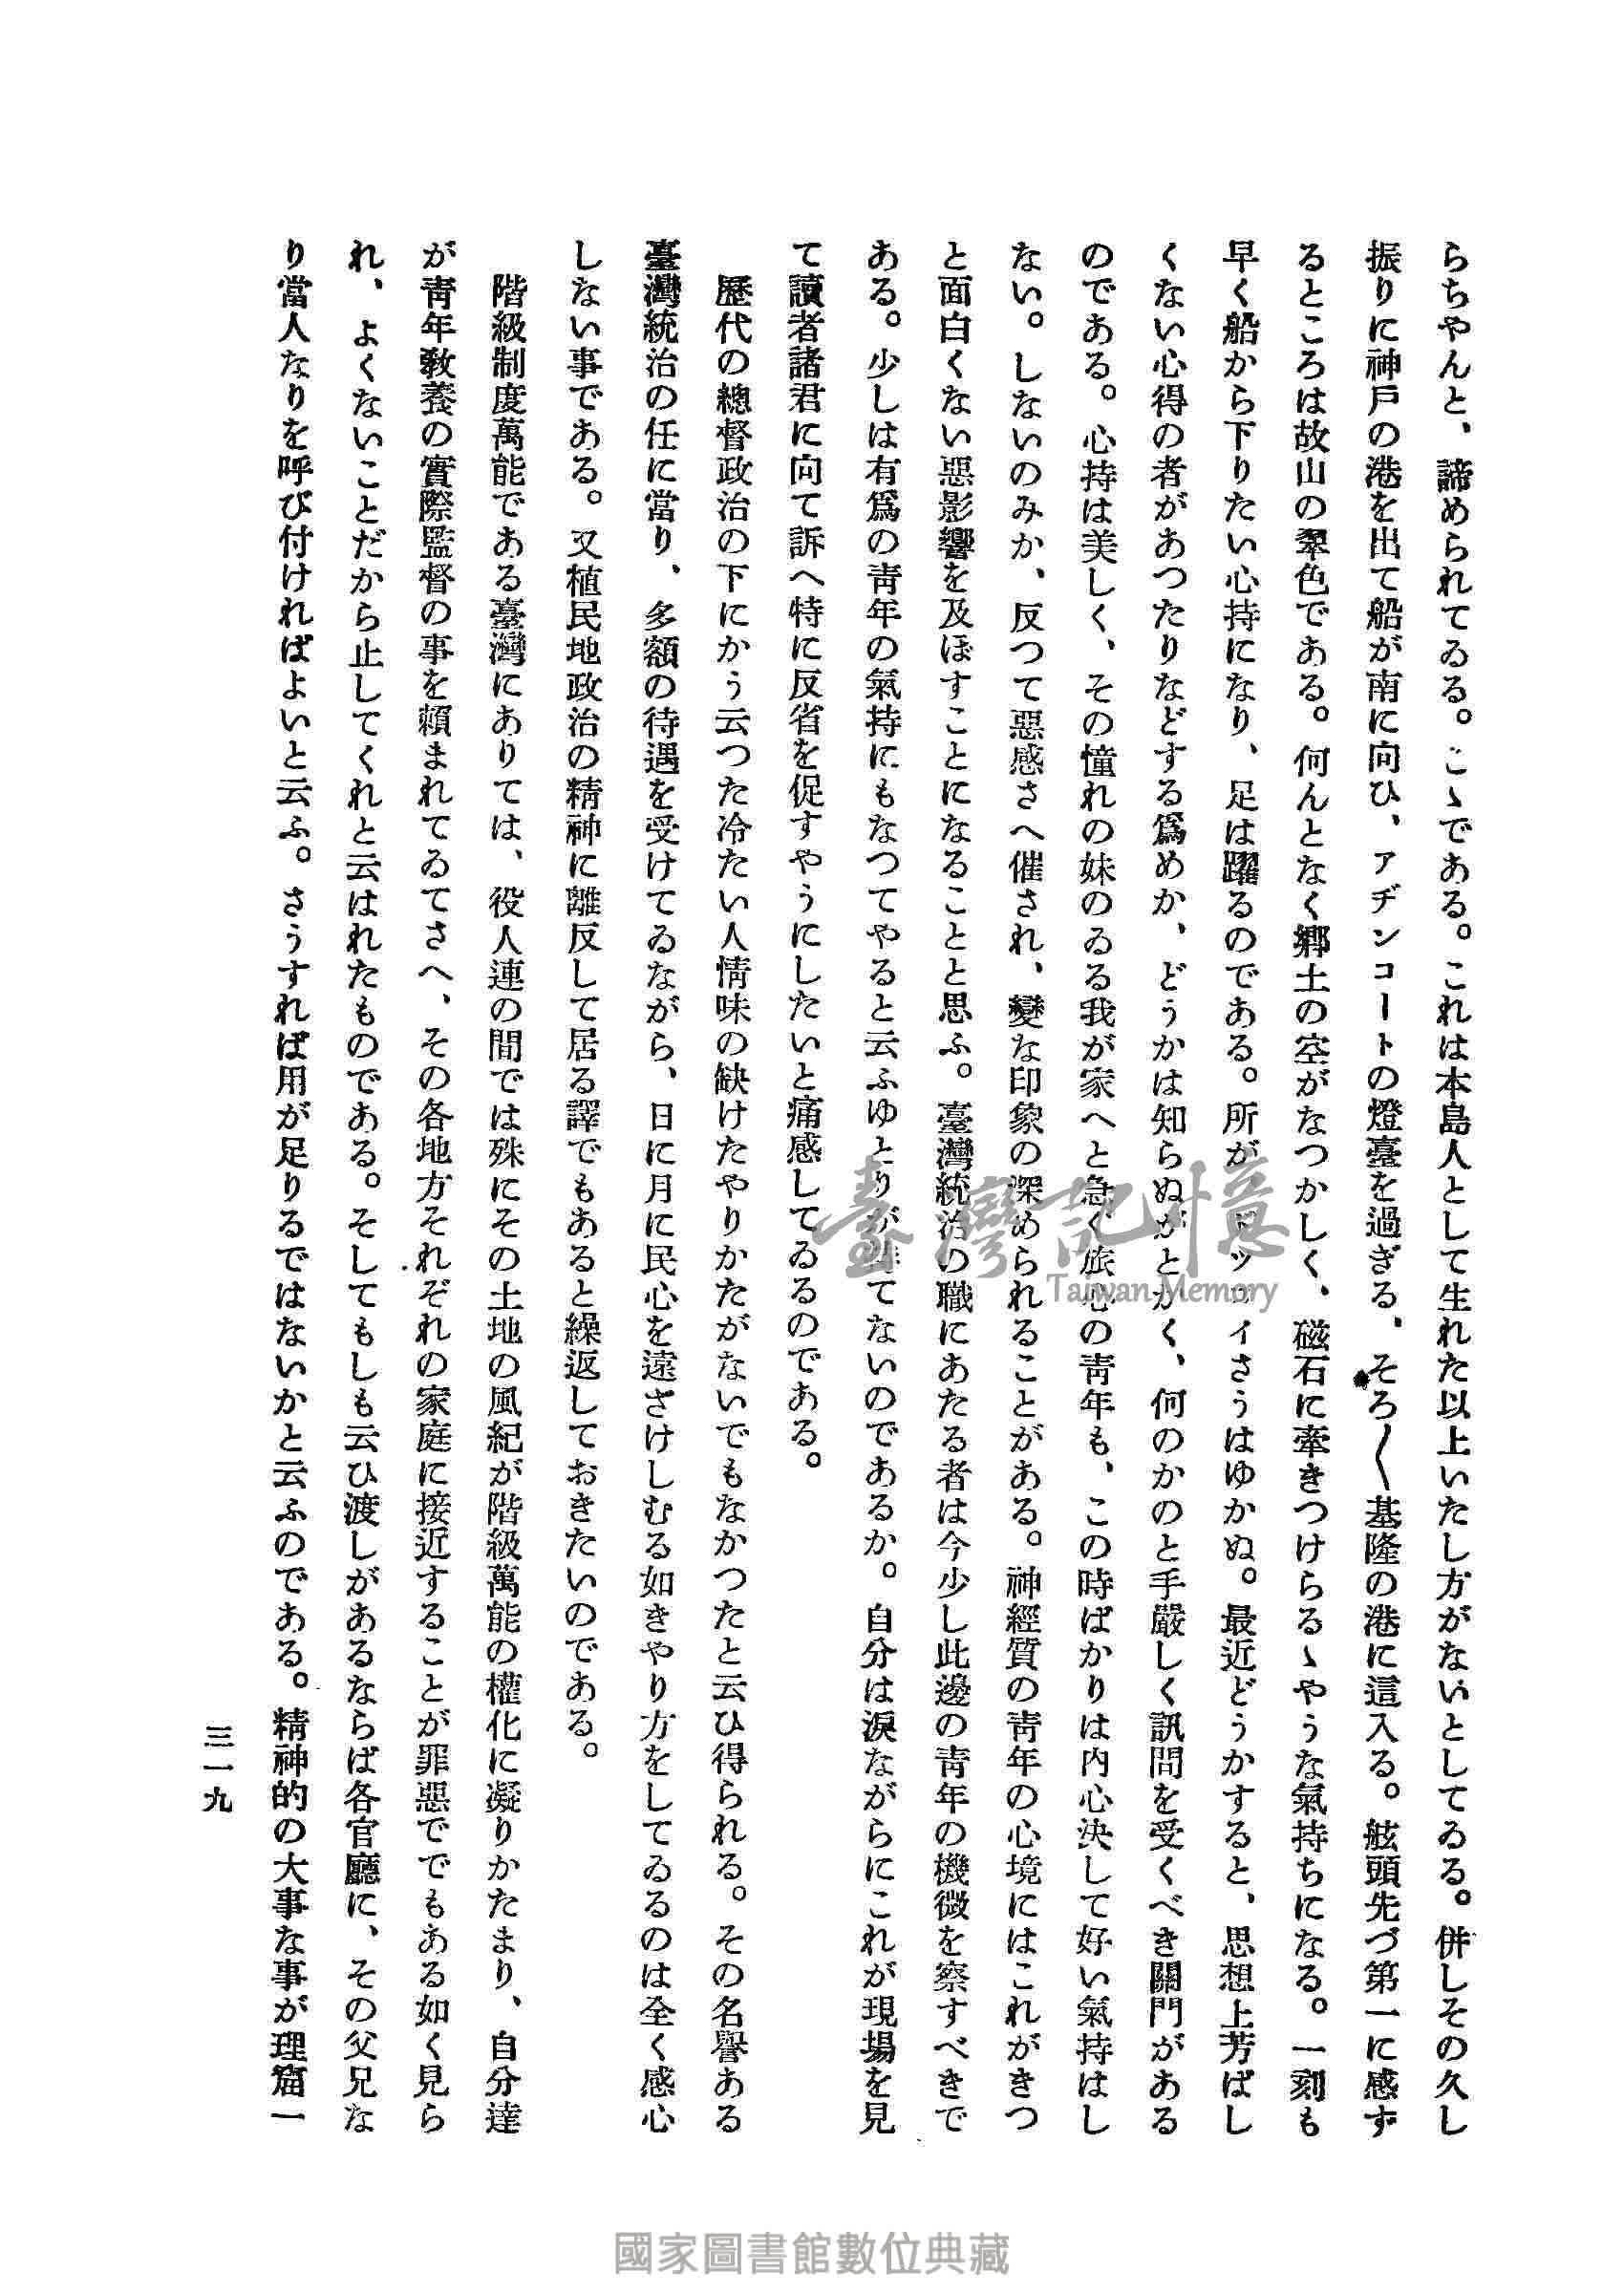 らちやんと、諦められてゐる。こゝである。これは本島人として生れた以上いたし方がないとしてゐる。併しその久し
振りに神戸の港を出て船が南に向ひ、アヂンコートの燈臺を過ぎる、そろ〳〵基隆の港に這入る。舷頭先づ第一に感ず
るところは故山の翠色である。何んとなく郷土の空がなつかしく、磁石に牽きつけらるゝやうな氣持ちになる。一刻も
早く船から下りたい心持になり、足は躍るのである。所が、ドツコイさうはゆかぬ。最近どうかすると、思想上芳ばし
くない心得の者があつたりなどする爲めか、どうかは知らぬがとかく、何のかのと手嚴しく訊問を受くべき關門がある
のである。心持は美しく、その憧れの妹のゐる我が家へと急ぐ旅心の青年も、この時ばかりは内心決して好い氣持はし
ない。しないのみか、反つて惡感さへ催され、變な印象の深められることがある。神經質の青年の心境にはこれがきつ
と面白くない惡影響を及ぼすことになることと思ふ。臺灣統治の職にあたる者は今少し此邊の青年の機微を察すべきで
ある。少しは有爲の青年の氣持にもなつてやると云ふゆとりが てないのであるか。自分は涙ながらにこれが現場を見
て讀者諸君に向て訴へ特に反省を促すやうにしたいと痛感してゐるのである。
歷代の總督政治の下にかう云つた冷たい人情味の缺けたやりかたがないでもなかつたと云ひ得られる。その名譽ある
臺灣統治の任に當り、多額の待遇を受けてゐながら、日に月に民心を遠ざけしむる如きやり方をしてゐるのは全く感心
しない事である。又植民地政治の精神に離反して居る譯でもあると繰返しておきたいのである。
階級制度萬能である臺灣にありては、役人連の間では殊にその土地の風紀が階級萬能の權化に凝りかたまり、自分達
が青年敎養の實際監督の事を賴まれてゐてさへ、その各地方それぞれの家庭に接近することが罪惡ででもある如く見ら
れ、よくないことだから止してくれと云はれたものである。そしてもしも云ひ渡しがあるならば各官廳に、その父兄な
り當人なりを呼び付ければよいと云ふ。さうすれば用が足りるではないかと云ふのである。精神的の大事な事が理窟一
三一九
臺灣記憶
Taiwan Memory
國家圖書館數位典藏